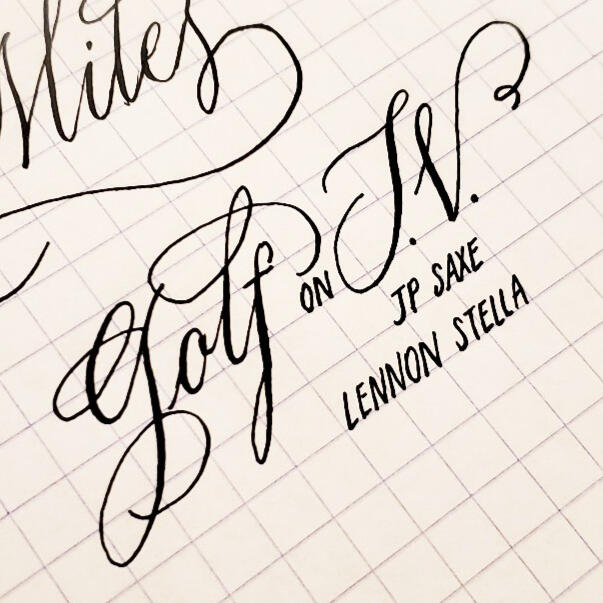 Golf ON T.V.
JP SAXE
LENNON STELLA